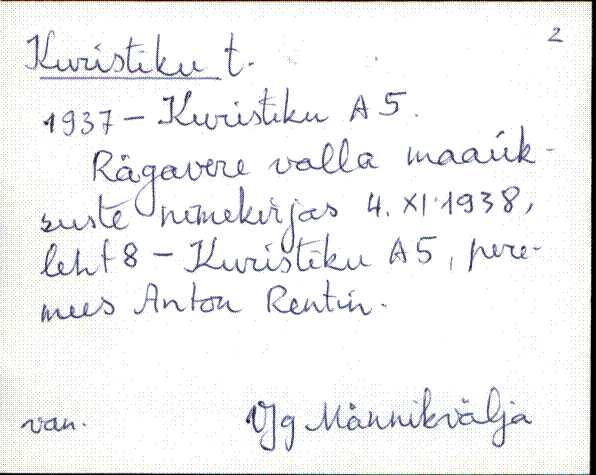 2
Kuristiku t.
1937 – Kuristiku A 5.
Rägavere valla maaük-
suste nimekirjas 4. XI 1938,
leht 8 – Kuristiku A5, pere-
mees Anton Rentin.
van. VJg Männikvälja